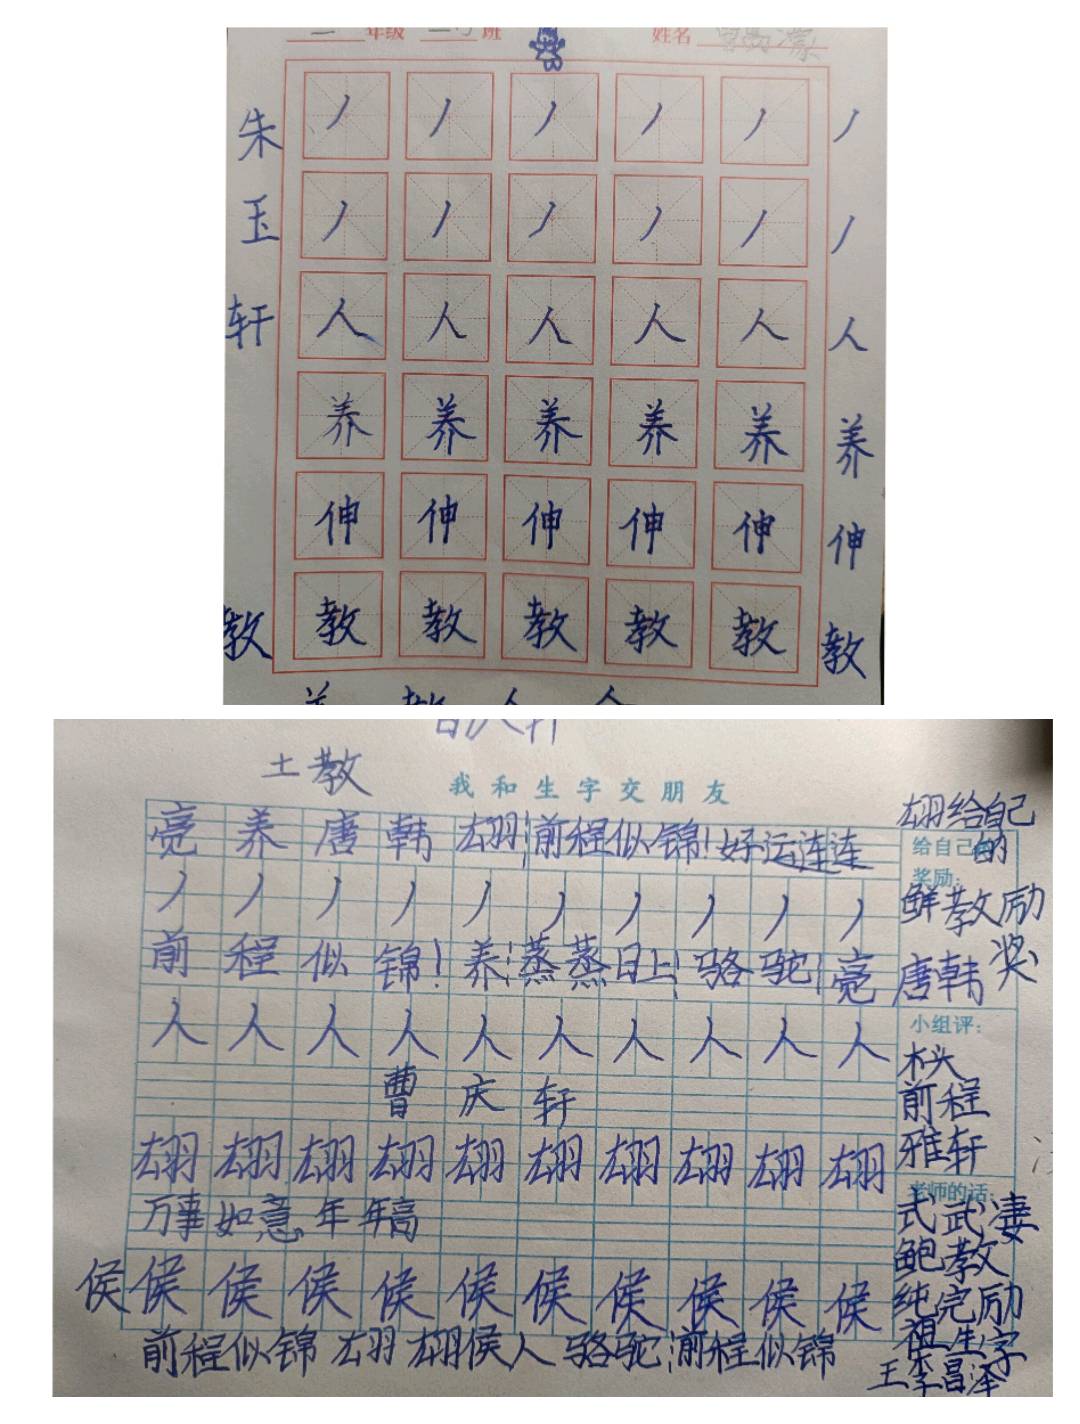 年级 班 姓名
朱 丿 丿 丿 丿 丿 丿
玉 丿 丿 丿 丿 丿 丿
轩 人 人 人 人 人 人
养 养 养 养 养 养
伸 伸 伸 伸 伸 伸
教 教 教 教 教 教 教
土教
我和生字交朋友
亮 养 唐 韩 翃 前程似锦!好运连连
丿 丿 丿 丿 丿 丿 丿 丿 丿 丿
前 程 似 锦! 养 蒸蒸日上 骆驼 亮
人 人 人 人 人 人 人 人 人 人
曹 庆 轩
翃 翃 翃 翃 翃 翃 翃 翃 翃 翃
万事如意 年年高
侯 侯 侯 侯 侯 侯 侯 侯 侯 侯 侯
前程似锦 翃 翃侯人 骆驼 前程似锦
翃给自己的
给自己的
奖励:
鲜教励
奖
唐韩
小组评:
木头
前程
雅轩
老师的话:
式武凄
鲍教
纯完励
祖生字
王李昌泽